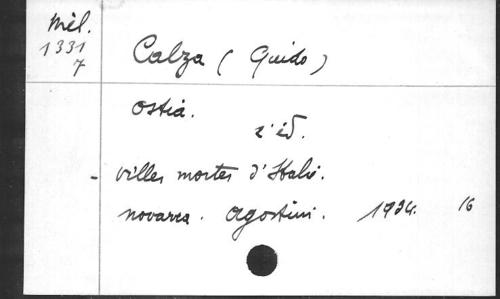 Mél.
1331
7
Calza ( Guido )
Ostia.
2e éd.
- villes mortes d'Italie.
Novarra. Agostini. 1934. 16